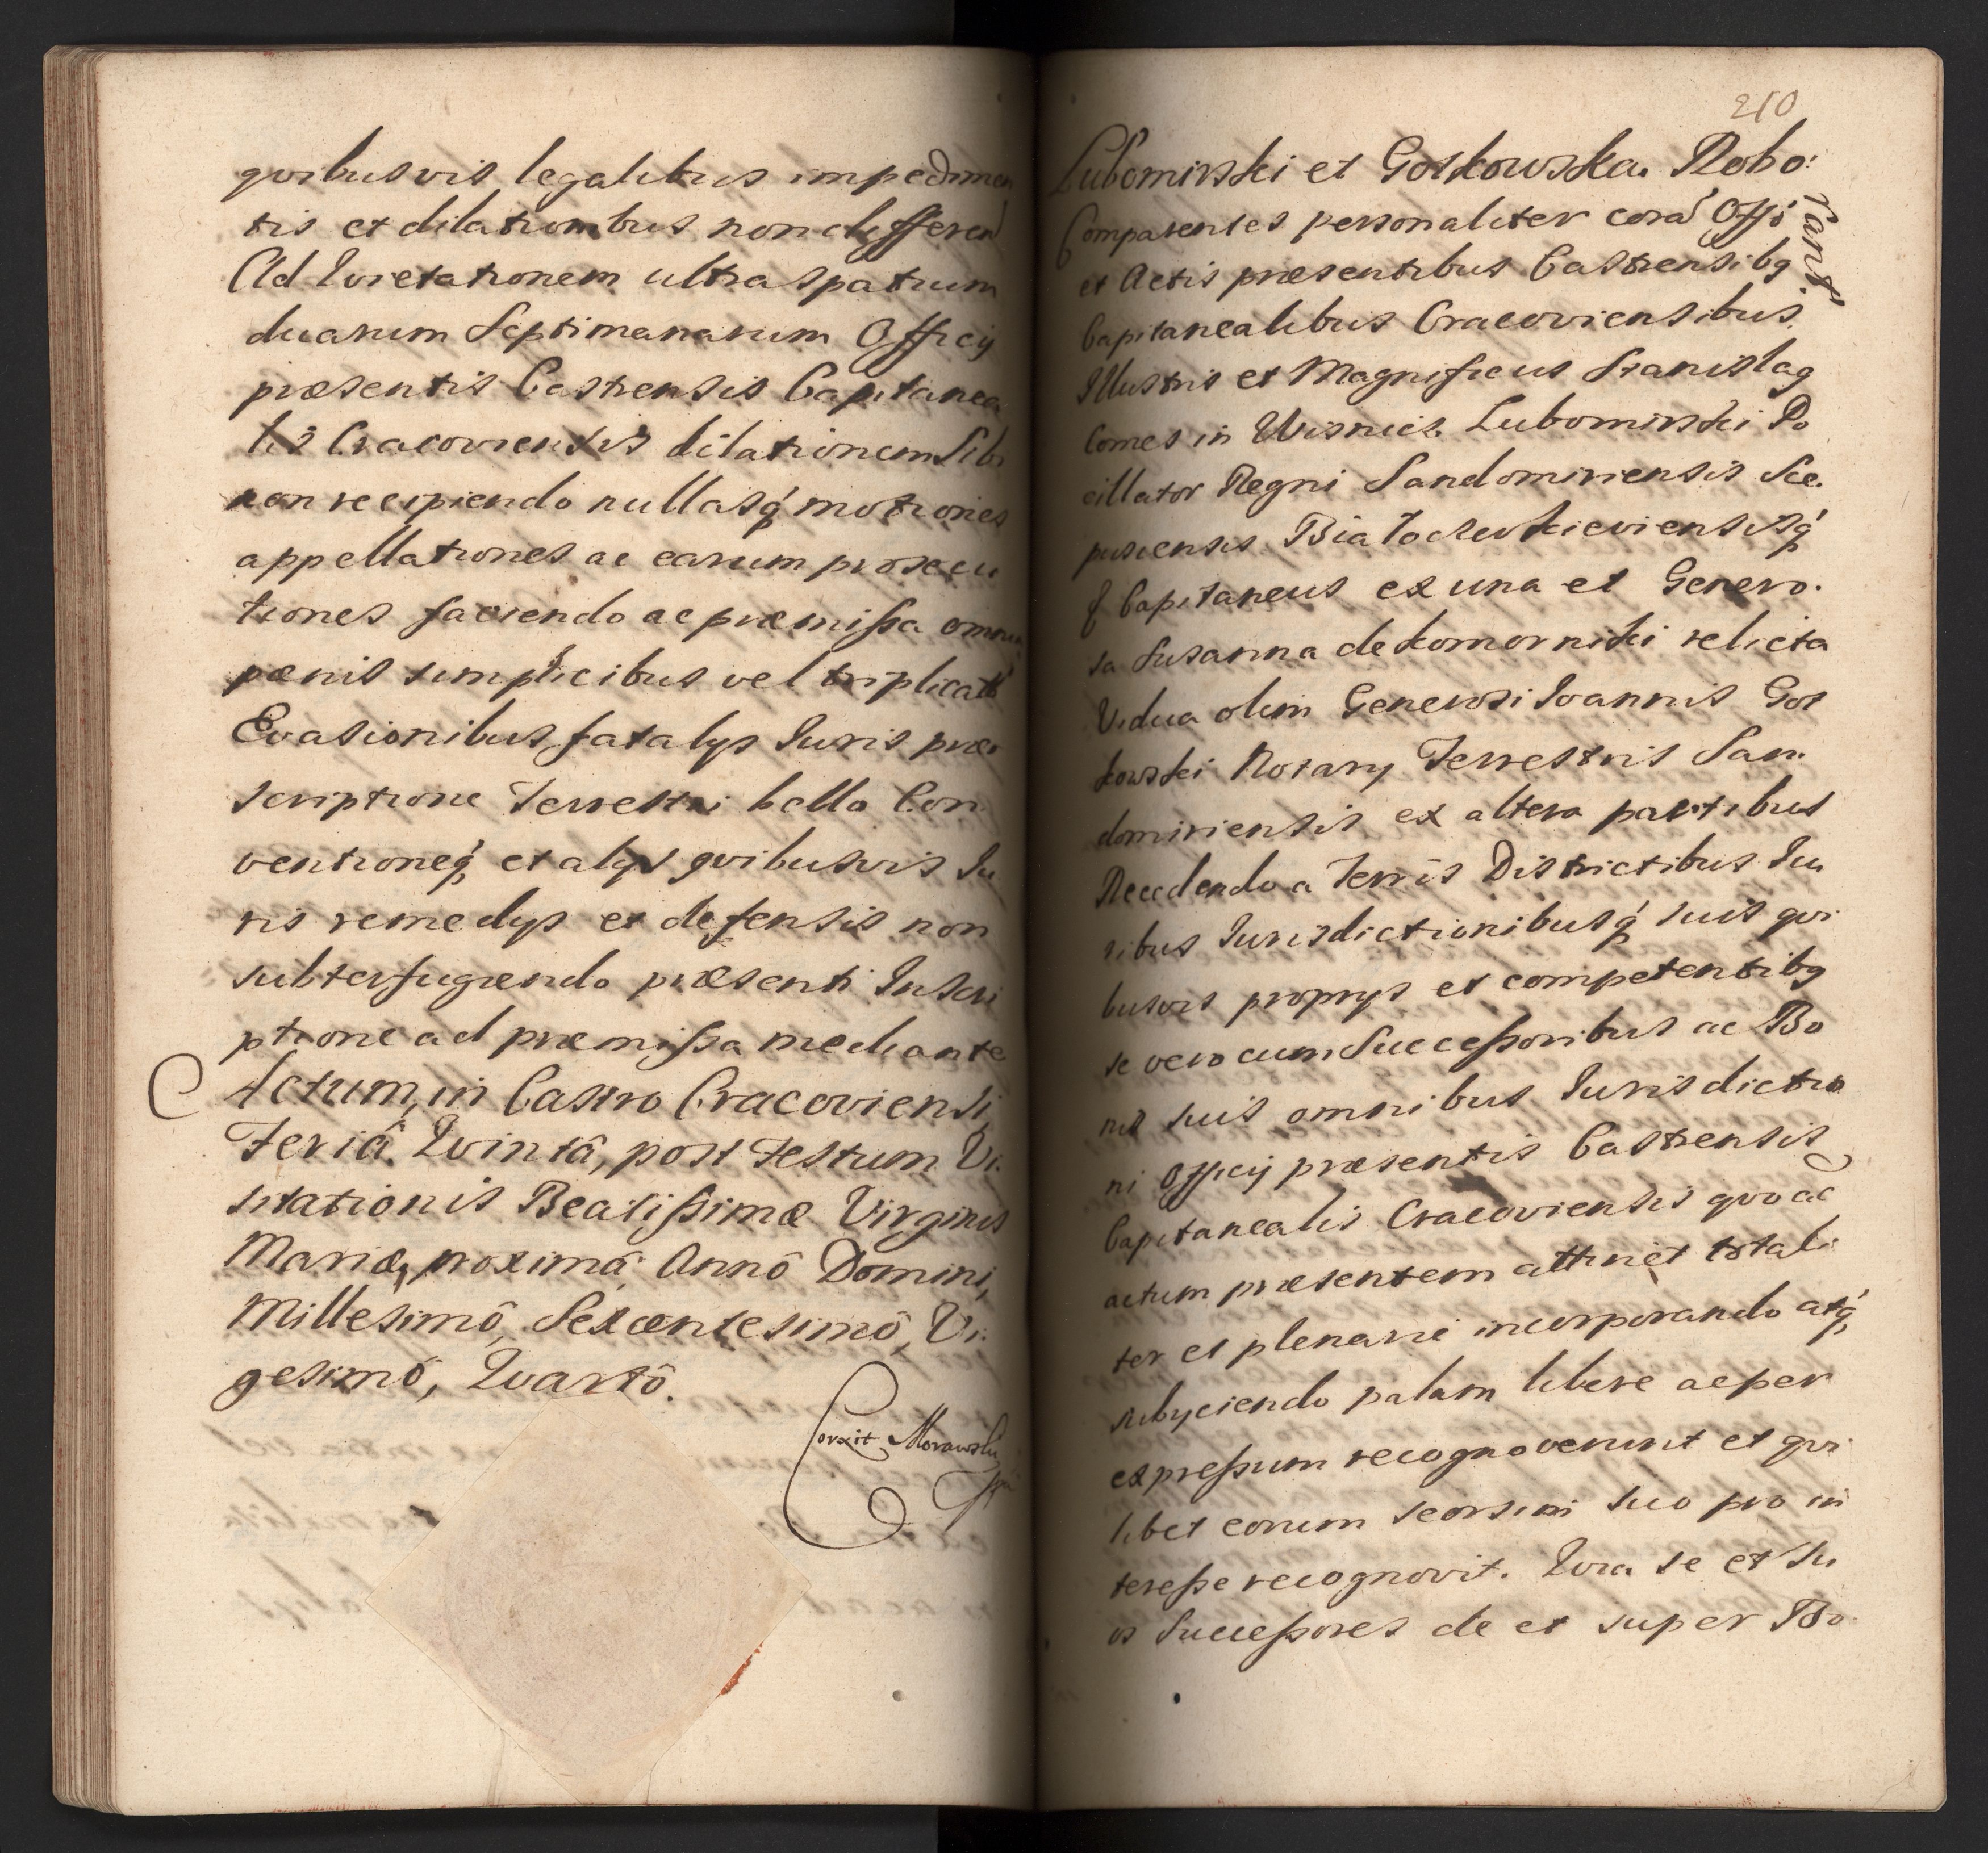 quibusvis legalibus impedimen
tis et dilationibus non differen
Ad Quietationem ultra spatium
duarum Septimanarum Officij
præsentis Castrensis Capitanea
lis Cracoviensis dilationem Sibi
non recipiendo nullasq́ motiones
appellationes ac earum prosecu
tiones faciendo ac præmissa omnia
pœnis simplicibus vel triplicatis
Evasionibus, fatalijs Iuris præ
scriptione Terrestri bello Con
ventioneq́ et alijs quibusvis Iu
ris remedijs et defensis non
subterfugiendo præsenti Inscri
ptione ad præmissa mediante
Actum, in Castro Cracoviensi,
Feriâ Quintâ, post Festum Vi
sitationis Beatissimæ Virginis
Mariæ, proximâ, Annô Domini,
Millesimô, Sexcentesimô, Vi
gesimô, Quartô.
Corxit Morawski
210
Lubomirski et Goskowska. Robo:
rant
Comparentes personaliter corā Offi
et Actis præsentibus Castrensibq
Capitanealibus Cracoviensibus
Illustris et Magnificus Stanislaq
Comes in Wisnicz Lubomirski Po
cillator Regni Sandomiriensis Sce.
pusiensis Białocerkieviensisq́
Capitaneus ex una et Genero.
sa Susanna de Komornicki relicta
Vidua olim Generosi Ioannis Gos
kowski Notarij Terrestris San.
domiriensis ex altera partibus
Recedendo a Terris Districtibus Iu
ribus Iurisdictionibusq́ suis qui
busvis proprijs et competentibq
se vero cum Successoribus ac Bo
nis suis omnibus Iurisdictio
ni Officij præsentis Castrensis
Capitanealis Cracoviensis quo ad
actum præsentem attinet totali
ter et plenarie incorporando atq́
subijciendo palam libere ac per
expressum recognoverunt et qui
libet eorum seorsim suo pro in
teresse recognovit. Quia se et Su
os Successores de et super Bo